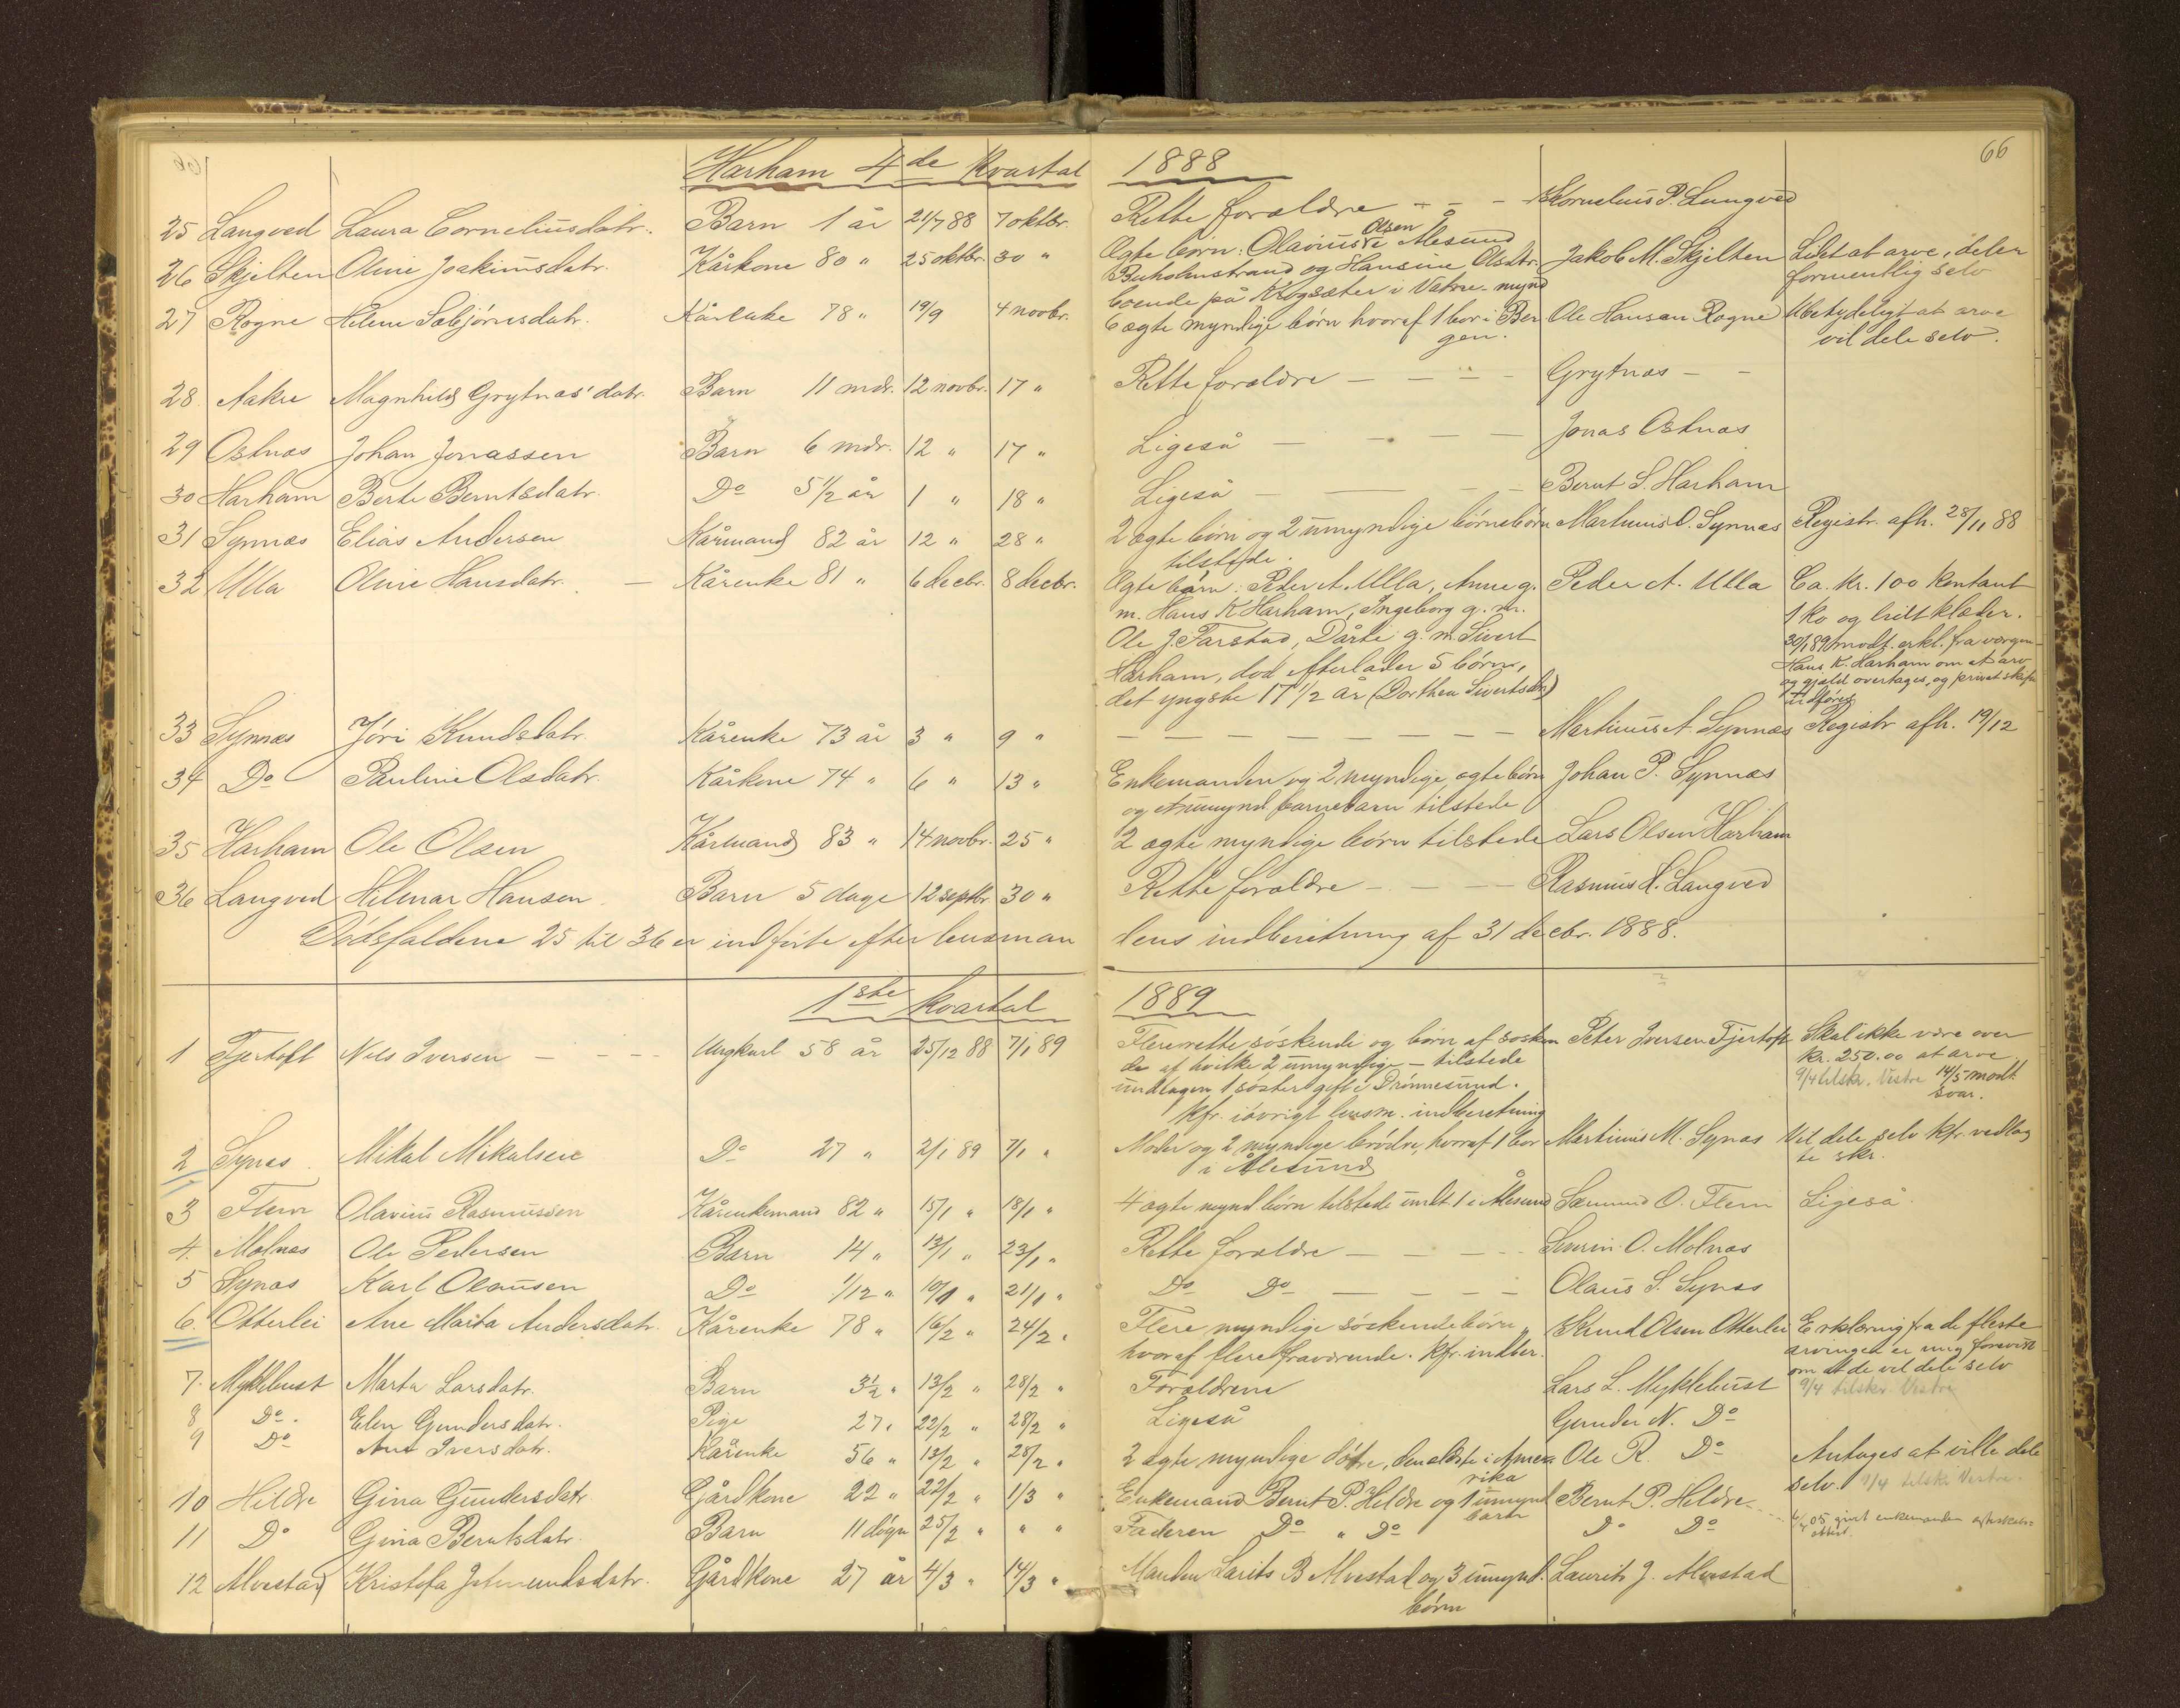 66
Harham 4de Kvartal 1888
25 Langved Laura Corneliusdatr. Barn 1 år 21/7 88 7 oktbr. Rette forældre – – – Kornelius P. Langved
26 Skjelten Oline Joakimsdatr. Kårkone 80 " 25 oktbr. 30 " Ægte børn: Olavius Olsen i Ålesund Jakob M. Skjelten Lidet at arve, deler
Buholmstrand og Hansine Olsdtr. formentlig selv
boende på Krogsæter i Vatne – mynd
27 Rogne Helene Sæbjørnsdatr. Kårenke 78 " 19/9 4 novbr. 6 ægte myndige børn hvoraf 1 bor i Ber Ole Hansen Rogne Ubetydeligt at arve
gen. vil dele selv.
28 Aakre Magnhild Grytnæs' datr. Barn 11 mdr. 12 novbr. 17 " Rette forældre – – – – Grytnæs – –
29 Østnæs Johan Jonassen Barn 6 mdr. 12 " 17 " Ligeså – – – – Jonas Østnæs
30 Harham Berte Berntsdatr. Do 5 1/2 år 1 " 18 " Ligeså – – – – Bernt S. Harham
31 Synnæs Elias Andersen Kårmand 82 år 12 " 28 " 2 ægte børn og 2 umyndige børnebørn Martinus O. Synnæs Registr. afh. 28/11 88
tilstede.
32 Ulla Oline Hansdatr. – Kårenke 81 " 6 decbr. 8 decbr. Ægte børn: Peder A. Ulla, Anne g. Peder A. Ulla Ca. kr. 100 kontant
m. Hans K Harham, Ingeborg g. m. 1 ko og lidt klæder.
Ole J. Farstad, Dårte g. m. Sivert 30/1 89 modt. erkl. fra værgen
Harham, død efterlader 5 børn, Hans K. Harham om at arv
det yngste 17 1/2 år (Dorthea Sivertsdtr) og gjæld overtages, og privat skifte
udføres
33 Synnæs Jøri Knudsdatr. Kårenke 73 år 3 " 9 " – – – – – – – Martinus A. Synnæs Registr afh. 19/12
34 Do Pauline Olsdatr. Kårkone 74 " 6 " 13 " Enkemanden og 2 myndige ægte børn Johan P. Synnæs
og umynd. barnebarn tilstede
35 Harham Ole Olsen Kårmand 83 " 14 novbr. 25 " 2 ægte myndige børn tilstede Lars Olsen Harham
36 Langved Hilmar Hansen Barn 5 dage 12 septbr. 30 " Rette forældre – – – Rasmus H. Langved
Dødsfaldene 25 til 36 er indførte efter lensman dens indberetning af 31 decbr. 1888.
1ste kvartal 1889
1 Fjertoft Nils Iversen – – – Ungkarl 58 år 25/12 88 7/1 89 Flere rette søskende og børn af søsken Peter Iversen Fjertoft Skal ikke være over
de af hvilke 2 umyndig – tilstede kr. 250.00 at arve
undtagen 1 søster gift i Drönnesund. 9/4 tilskr. Vestre 14/5 modt.
kfr. iøvrigt lensm. indberetning svar.
2 Synes Mikal Mikalsen Do 27 " 2/1 89 7/1 " Moder og 2 myndige brødre, hvoraf 1 bor Martinus M. Synæs Vil dele selv kfr. vedlag
i Ålesund te skr.
3 Flem Olavius Rasmussen Kårenkemand 82 " 15/1 " 18/1 " 4 ægte mynd børn tilstede undt. 1 i Ålesund Sæmund O. Flem Ligeså
4. Molnæs Ole Pedersen Barn 14 " 13/1 " 23/1 " Rette forældre – – – O. Molnæs
5 Synæs Karl Olausen Do 1/12 " 10/1 " 21/1 " Do Do – – – – Olaus S. Synæs
6. Otterlei Ane Marta Andersdatr. Kårenke 78 " 16/2 " 24/2 " Flere myndige søskendebørn Knud Olsen Otterlei Erklæring fra de fleste
hvoraf flere fraværende. kfr. indber. arvinger er mig forevist
om at de vil dele selv
7. Myklebust Marta Larsdatr. Barn 3 1/2 " 13/2 " 28/2 " Forældrene Lars L. Myklebust 9/4 tilskr. Vestre
8 Do. Elen Gundersdatr. Pige 27 " 22/2 " 28/2 " Ligeså Gunder N. Do
9 Do Ane Iversdatr. Kårenke 56 " 13/2 " 28/2 " 2 ægte myndige døtre, den ældste i Ame Ole R. Do Antages at ville dele
rika selv. 9/4 tilskr Vestre.
10 Hildre Gina Gundersdatr. Gårdkone 22 " 22/2 " 1/3 " Enkemand Bernt P. Hildre og 1 umynd Bernt P. Hildre
barn
11 Do Gina Berntsdatr. Barn 11 døgn 25/2 " " " Faderen Do " Do Do Do 05 givet enkemanden
attest.
12 Alvestad Kristofa Jetmundsdatr. Gårdkone 27 år 4/3 " 14/3 " Manden Larits B Alvestad og 3 umynd. Laurits J. Alvestad
børn